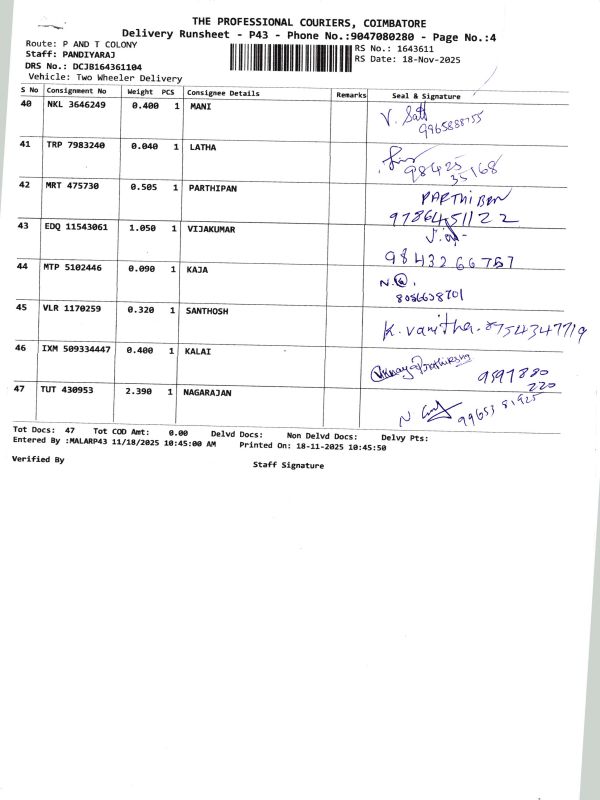 THE PROFESSIONAL COURIERS, COIMBATORE
Delivery Runsheet - P43 - Phone No.:9047080280 - Page No.:4
Route: P AND T COLONY
Staff: PANDIYARAJ
DRS No.: DCJB164361104
Vehicle: Two Wheeler Delivery
RS No.: 1643611
RS Date: 18-Nov-2025
S No Consignment No Weight PCS Consignee Details Remarks Seal & Signature
40 NKL 3646249 0.400 1 MANI
41 TRP 7983240 0.040 1 LATHA
98425
35168
42 MRT 475730 0.505 1 PARTHIPAN PARTHIBAN
43 EDQ 11543061 1.050 1 VIJAKUMAR
44 MTP 5102446 0.090 1 KAJA
8056638701
45 VLR 1170259 0.320 1 SANTHOSH K. vanitha. 8754347719
46 IXM 509334447 0.400 1 KALAI
47 TUT 430953 2.390 1 NAGARAJAN
99653 81925
Tot Docs: 47 Tot COD Amt: 0.00 Delvd Docs: Non Delvd Docs: Delvy Pts:
Entered By :MALARP43 11/18/2025 10:45:00 AM Printed On: 18-11-2025 10:45:50
Verified By
Staff Signature